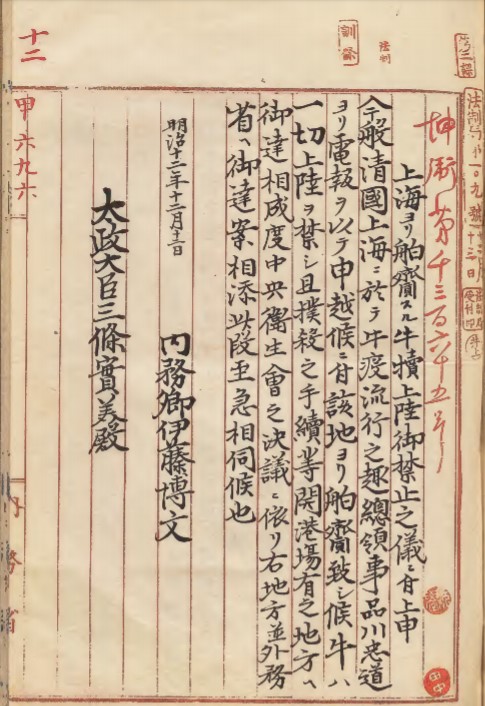 十二
甲六九六
訓条
法制
法制局甲一〇九號
坤衛第千三百六十五号
上海ヨリ舶齎スル牛犢上陸御禁止之儀ニ付上申
今般清國上海ニ於テ牛疫流行之趣總領事品川忠道
ヨリ電報ヲ以テ申越候ニ付該地ヨリ舶齎致シ候牛ハ
一切上陸ヲ禁シ且撲殺之手續等開港場有之地方ヘ
御達相成度中央衛生會之決議ニ依リ右地方並外務
省ヘ御達案相添此段至急相伺候也
明治十二年十二月十三日
内務卿伊藤博文
太政大臣三條實美殿
内務省
田中